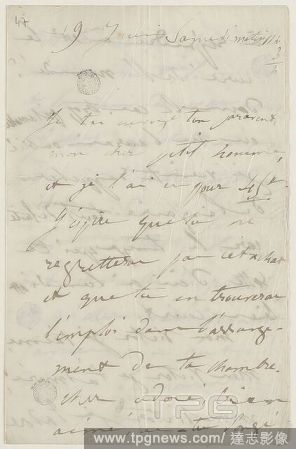 47
9 Juin samedi matin
Je t'ai envoyé ton paravent
mon cher petit homme,
et je l'ai eu pour
J'espère que tu ne
regretteras pas cet achat
et que tu en trouveras
l'emploi dans l'arrange-
ment de ta chambre.
cher adoré, bien
aimé
TPG
www.tpgnews.com / 達志影像